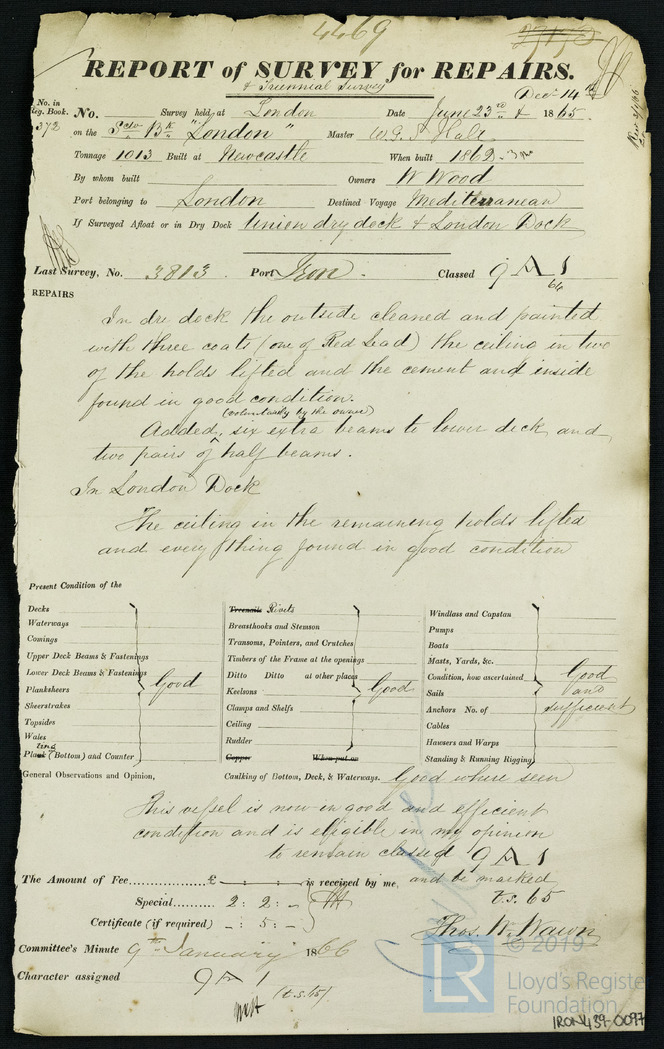 4469
REPORT of SURVEY for REPAIRS.
& Triennial Survey
No. in Reg. Book. 372
No. Survey held at London Date June 23rd & Decr 14th 1865.
on the Scw Bk "London" Master W. G. S. Hale
Tonnage 1013 Built at Newcastle When built 1862
By whom built Owners W Wood
Port belonging to London Destined Voyage Mediterranean
If Surveyed Afloat or in Dry Dock Union dry dock & London Dock
Last Survey, No. 3813. Port Iron. Classed 9 A 1
64
REPAIRS
In dre dock the outside cleaned and painted
with three coats (one of Red Lead) the ceiling in two
of the holds lifted and the cement and inside
found in good condition.
(voluntarily by the owner)
Added, six extra beams to lower deck and
two pairs of half beams.
In London Dock
The ceiling in the remaining holds lifted
and everything found in good condition
Present Condition of the
Decks
Waterways
Comings
Upper Deck Beams & Fastenings
Lower Deck Beams & Fastenings
Planksheers
Sheerstrakes
Topsides
Wales
Plank (Bottom) and Counter
Good
Treenails Rivets
Breasthooks and Stemson
Transoms, Pointers, and Crutches
Timbers of the Frame at the openings
Ditto Ditto at other places
Keelsons
Clamps and Shelfs
Ceiling
Rudder
Copper When put on
Good
Windlass and Capstan
Pumps
Boats
Masts, Yards, &c.
Condition, how ascertained
Sails
Anchors No. of
Cables
Hawsers and Warps
Standing & Running Rigging
Good
and
sufficient
General Observations and Opinion, Caulking of Bottom, Deck, & Waterways. Good where seen
This vessel is now in good and efficient
condition and is eligible in my opinion
to remain classed 9 A 1
and be marked
t.s. 65
The Amount of Fee............... £ - : - : - is received by me,
Special......... 2 : 2 : -
Certificate (if required) - : 5 : -
Thos. W. Wawn
Committee's Minute 9th January 1866
Character assigned 9 A 1
(t.s. 65)
© 2019
LR
Lloyd's Register
Foundation
IRON439-0097